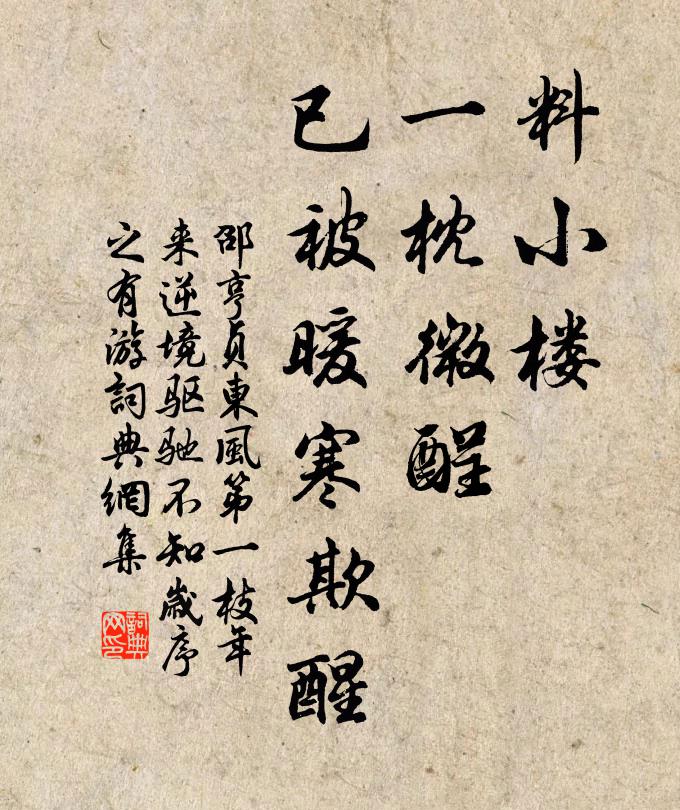 料小楼
一枕微酲
已被暖寒欺醒
邵亨贞東風第一枝年
来逆境驱驰不知歲序
之有游詞典網集
詞典
网印